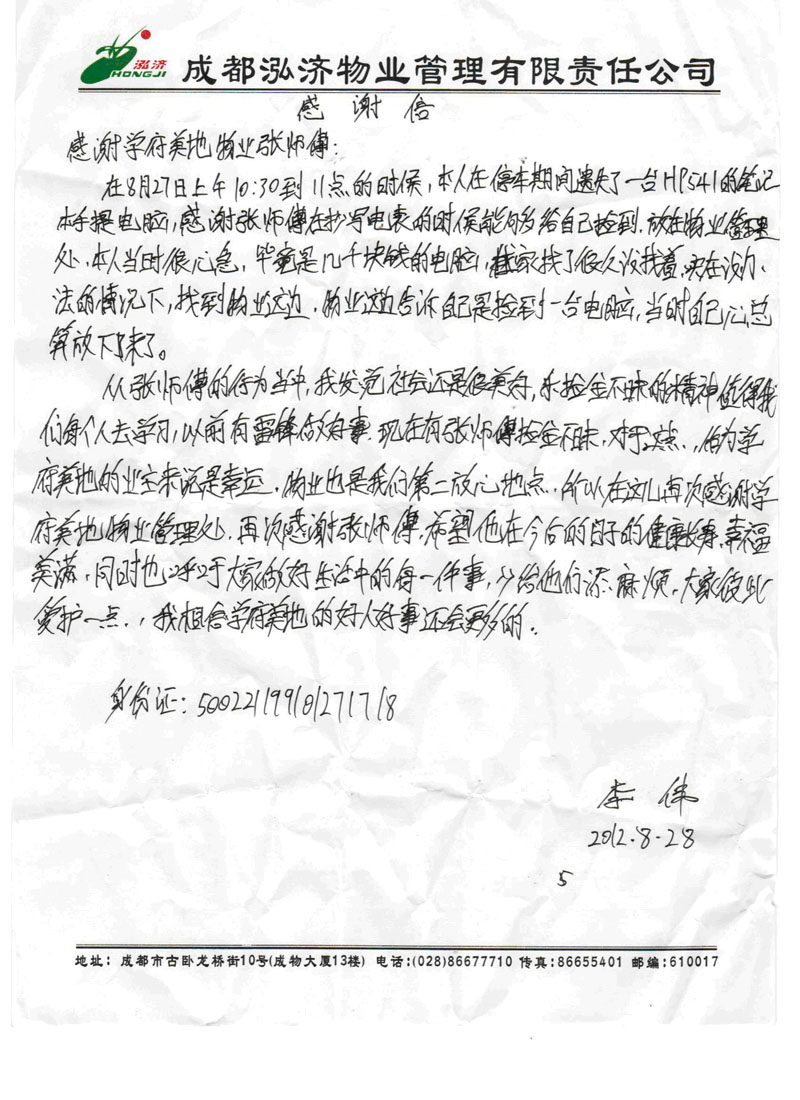 泓济
HONGJI
成都泓济物业管理有限责任公司
感谢信
感谢学府美地物业张师傅:
在8月27日上午10:30到11点的时候,本人在停车期间遗失了一台HP541的笔记
本手提电脑,感谢张师傅在抄写电表的时候能够给自己捡到.放在物业管理
处,本人当时很心急,毕竟是几千块钱的电脑,找了很久没找着,实在没办
法的情况下,找到物业这边.物业这边告诉自己是捡到了一台电脑,当时自己心总
算放下来了。
从张师傅的行为当中,我发觉社会还是很美好,拾金不昧的精神值得我
们每个人去学习,以前有雷锋做好事.现在有张师傅捡金不昧.对于这点.,作为学
府美地的业主来说是幸运.物业也是我们第二放心地点.所以在这儿再次感谢学
府美地物业管理处.再次感谢张师傅,希望他在今后的日子的健康长寿,幸福
美满,同时也呼吁大家做好生活中的每一件事,少给他们添麻烦,大家彼此
爱护一点.,我相信学府美地的好人好事还会更多的。
身份证:
李伟
2012.8.28
5
地址:成都市古卧龙桥街10号(成物大厦13楼) 电话:(028)86677710 传真:86655401 邮编:610017